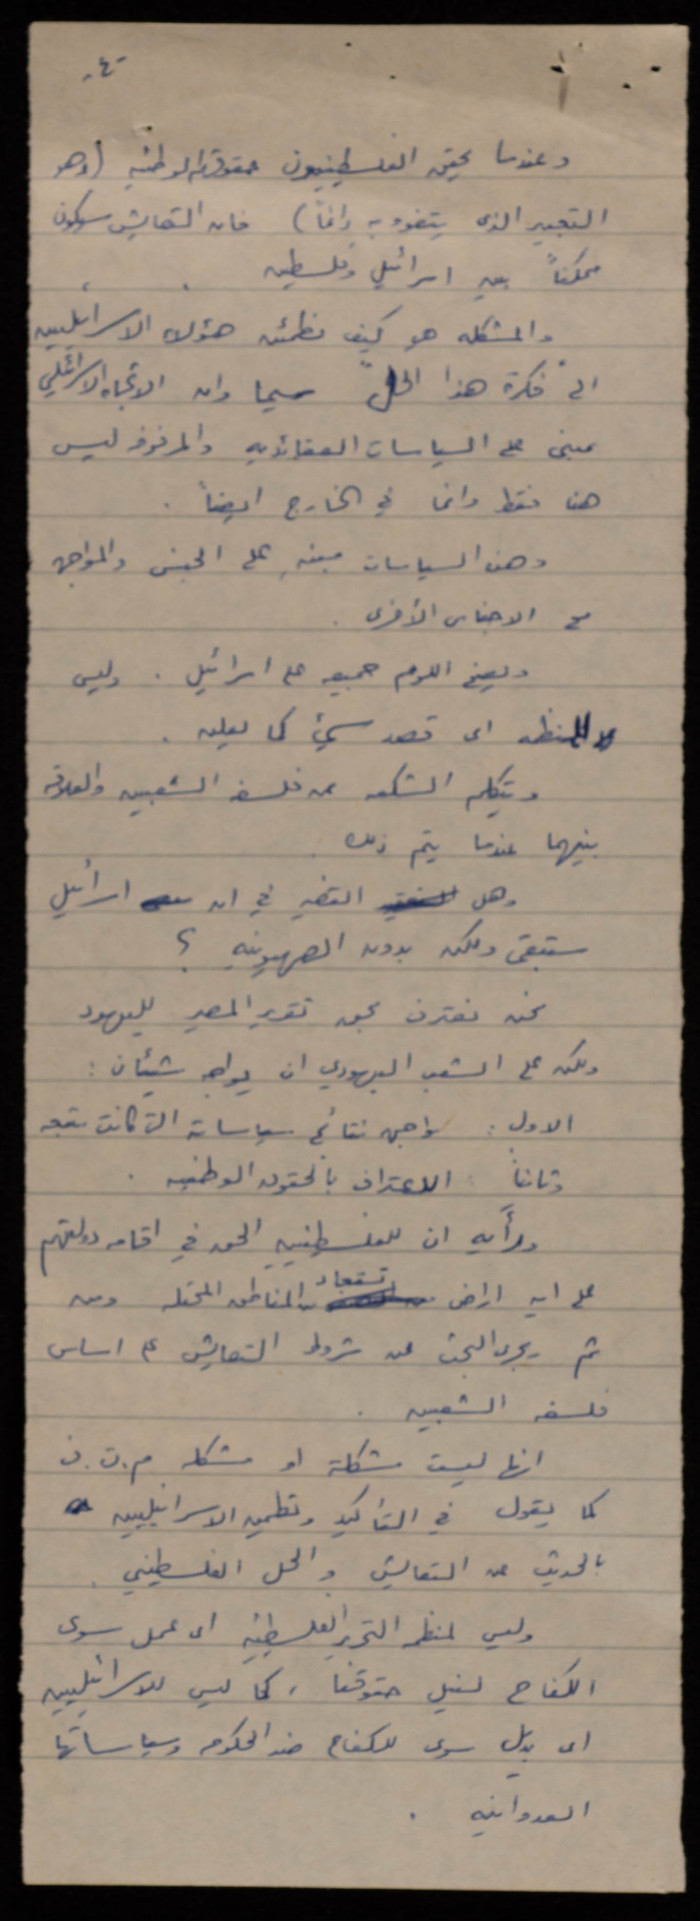 -٤-
وعندما يحقق الفلسطينيون حقوقهم الوطنيه (وهو
التعبير الذى يتفوه به دائماً) فان التعايش سيكون
ممكناً بين اسرائيل وفلسطين
والمشكله هو كيف نطمئن هؤلاء الاسرائيليين
الى فكرة هذا الحل سيما وان الاتجاه الاسرائيلي
مبنى على السياسات العقائديه والمرفوضه ليس
هنا فقط وانما في الخارج ايضاً .
وهذه السياسات مبنيه على الجنس والمواجهه
مع الاجناس الأخرى .
ويضع اللوم جميعه على اسرائيل . وليس
للمنظمه اى قصد سيئ كما يعلن .
ويتكلم الشكعه عن فلسفة الشعبين والعلاقه
بينهما عندما يتم ذلك .
وهل القضيه في ان اسرائيل
ستبقى ولكن بدون الصهيونيه ؟
نحن نعترف بحق تقرير المصير لليهود
ولكن على الشعب اليهودي ان يواجه شيئان :
الاول : مواجهة نتائج سياساته التى كانت متبعه
وثانياً : الاعتراف بالحقوق الوطنيه .
ورأيه ان للفلسطينيين الحق في اقامه دولتهم
على ايه اراض تستعاد من المناطق المحتله ومن
ثم يجرى البحث عن شروط التعايش على اساس
فلسفه الشعبين .
انها ليست مشكلة او مشكله م.ت.ف
كما يقول في التأكيد وتطمين الاسرائيليين
بالحديث عن التعايش والحل الفلسطيني .
وليس لمنظمه التحرير الفلسطينيه اى عمل سوى
الكفاح لنيل حقوقنا ، كما ليس للاسرائيليين
اى بديل سوى الكفاح ضد الحكومه وسياساتها
العدوانيه .